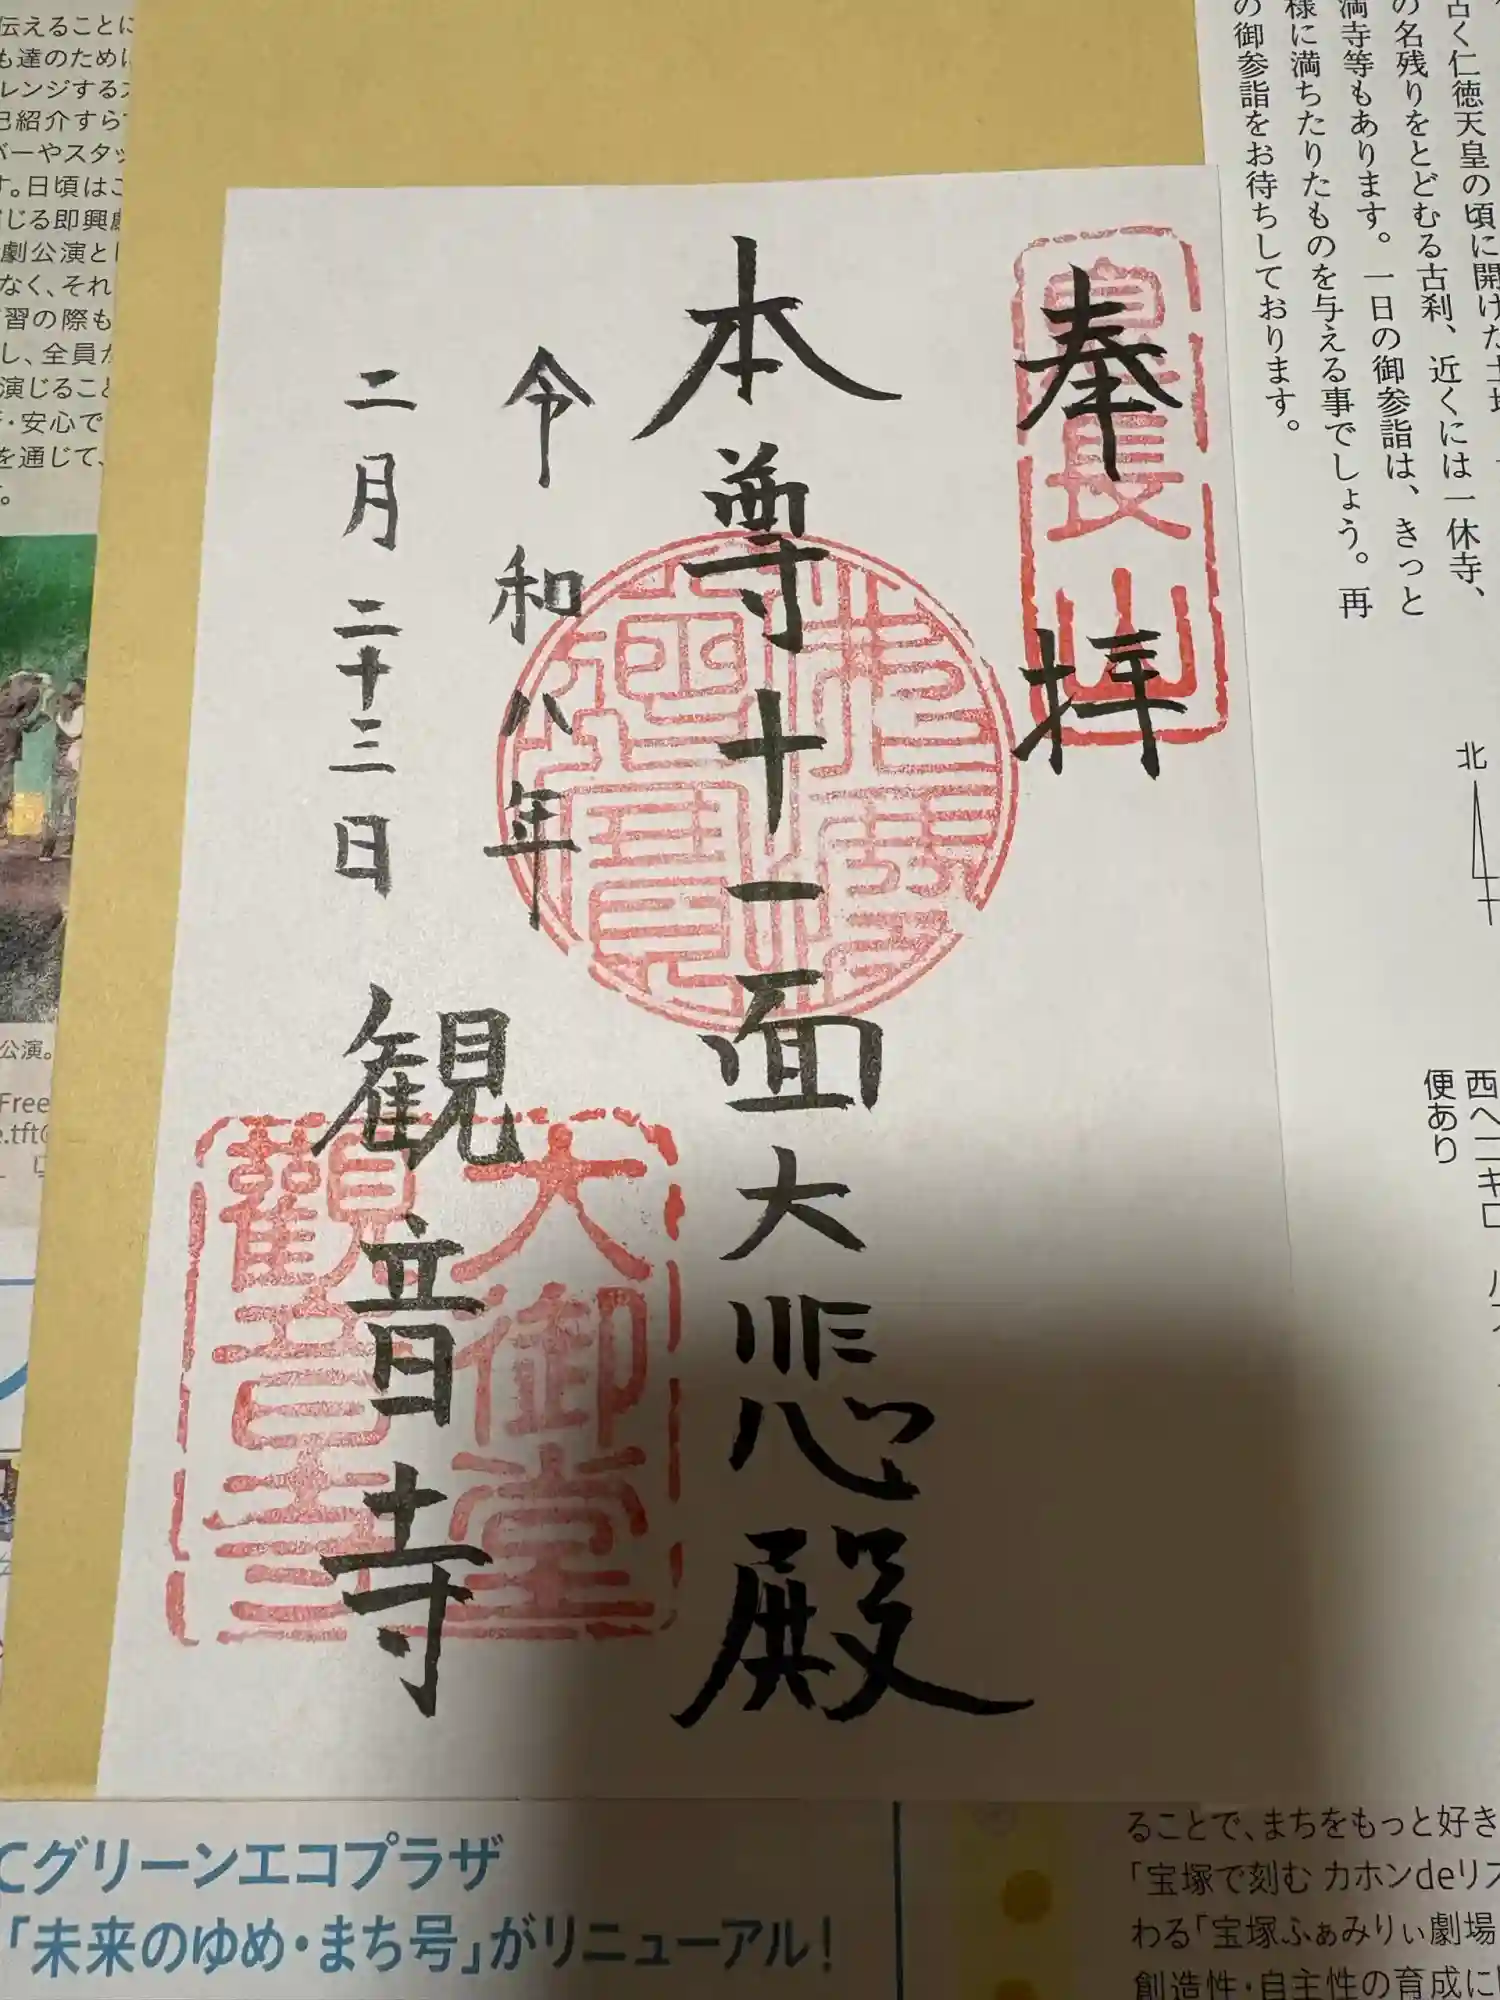 奉拝
本尊十一面大悲殿
令和八年
二月二十三日
観音寺
長山
大御堂
観音寺
古く仁徳天皇の頃に開けた土
の名残りをとどむる古刹、近くには一休寺、
満寺等もあります。一日の御参詣は、きっと
様に満ちたりたものを与える事でしょう。再
の御参詣をお待ちしております。
北
西へ二キロ バス
便あり
伝えることに
も達のために
レンジする
己紹介すら
バーやスタッ
す。日頃はこ
じる即興劇
劇公演と
なく、それ
習の際も
し、全員が
演じること
・安心で
を通じて、
。
公演。
Free
e.tft@
Cグリーンエコプラザ
「未来のゆめ・まち号」がリニューアル！
ることで、まちをもっと好き
「宝塚で刻む カホンdeリズ
わる「宝塚ふぁみりぃ劇場
創造性・自主性の育成に